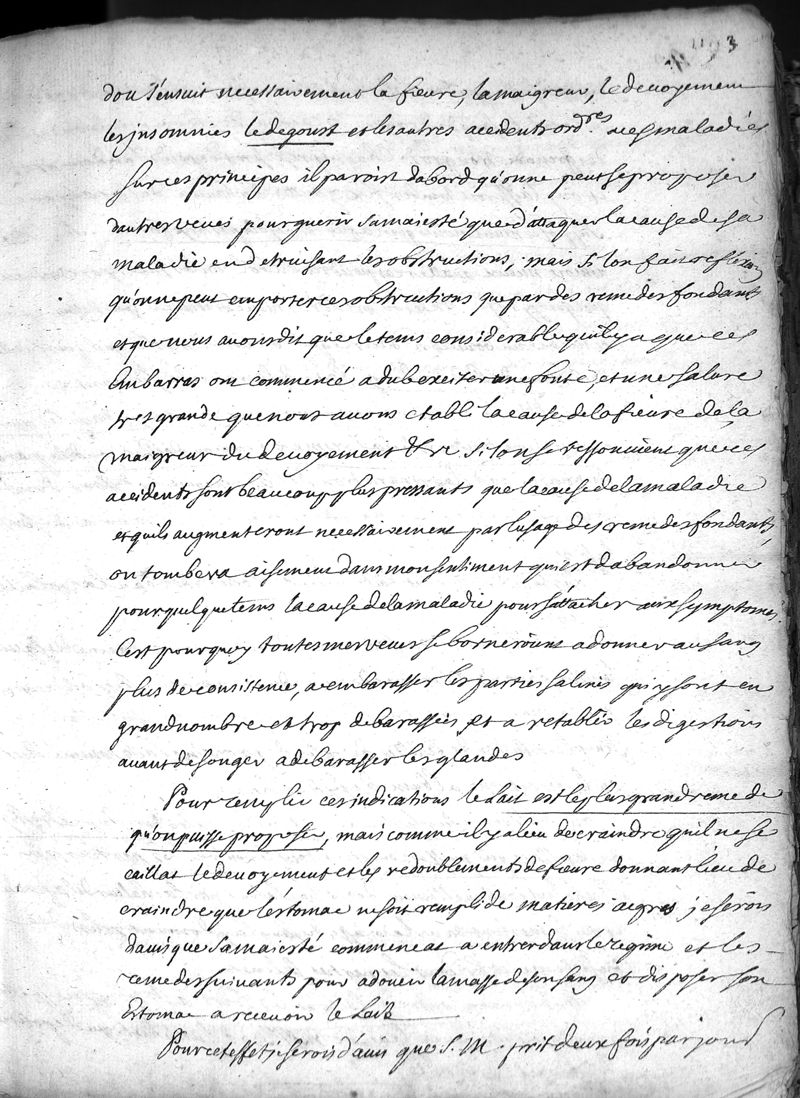 3
dou s'ensuit necessairement la fievre, la maigreur, le devoyement
les insomnies le degoust et les autres accidents ord.res a ces maladies
Sur ces principes il paroist dabord qu'on ne peut se proposer
dautres veues pour guerir sa maiesté que d'attaquer la cause de sa
maladie en detruisant les obstructions, mais si lon fait reflexion
qu'on ne peut emporter ces obstructions que par des remedes fondants
et que nous avons dit que le tems considerable quil y a que ces
Embarras ont commencé a du exciter une fonte, et une salure
tres grande que nous avons etabli la cause de la fievre de la
maigreur du devoyement &c si lon se ressouvient que ces
accidents sont beaucoup plus pressants que la cause de la maladie
et quils augmenteront necessairement par lusage des remedes fondants,
on tombera aisement dans mon sentiment qui est dabandonner
pour quelque tems la cause de la maladie pour s'attacher aux symptomes.
C'est pourquoy toutes mes veues se borneront a donner au sang
plus de consistence, a embarasser les parties salines qui y sont en
grand nombre et trop debarassées et a retablir les digestions
avant de songer a debarasser les glandes
Pour remplir ces indications le Lait est le plus grand remede
qu'on puisse proposer, mais comme il y a lieu de craindre quil ne se
caillat le devoyement et les redoublements de fievre donnant lieu de
craindre que l'estomac ne soit rempli de matieres aigres je serois
davis que sa maiesté commencat a entrer dans le regime et les
remedes suivants pour adoucir la masse de son sang et disposer son
Estomac a recevoir le Lait
Pour cet effet je serois d'avis que S. M. prit deux fois par jour